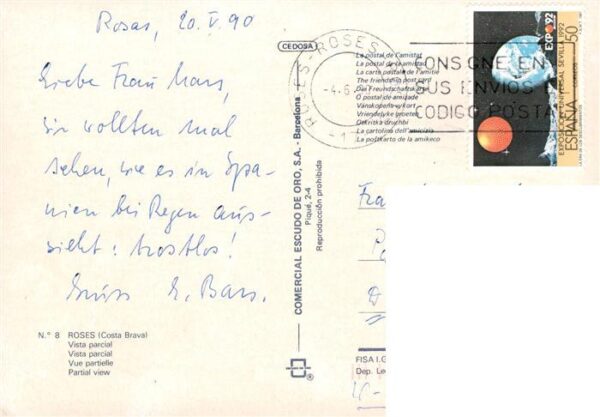 Rosas, 20.V.90
Liebe Frau Mars,
wir wollten mal
sehen, wie es in Spa-
nien bei Regen aus-
sieht: trostlos!
Gruss E. Bars.
N.° 8 ROSES (Costa Brava)
Vista parcial
Vista parcial
Vue partielle
Partial view
CEDOSA
COMERCIAL ESCUDO DE ORO, S.A. - Barcelona
Piqué, 2-4
Reproducción prohibida
®
La postal de l'amistat
La postal de la amistad
La carte postale de l'amitié
The friendship post card
Die Freundschaftskarte
O postal de amizade
Vänskapens vykort
Vriendelijke groeten
Otkritka druzhbi
La cartolina dell'amicizia
La poŝtkarto de la amikeco
ROSES
4-6
CONSIGNE EN
SUS ENVIOS E
CODIGO POSTA
EXPO 92
EXPOSICION UNIVERSAL SEVILLA 1992
ESPAÑA
CORREOS
50
Fra
D
FISA I.G
Dep. Le